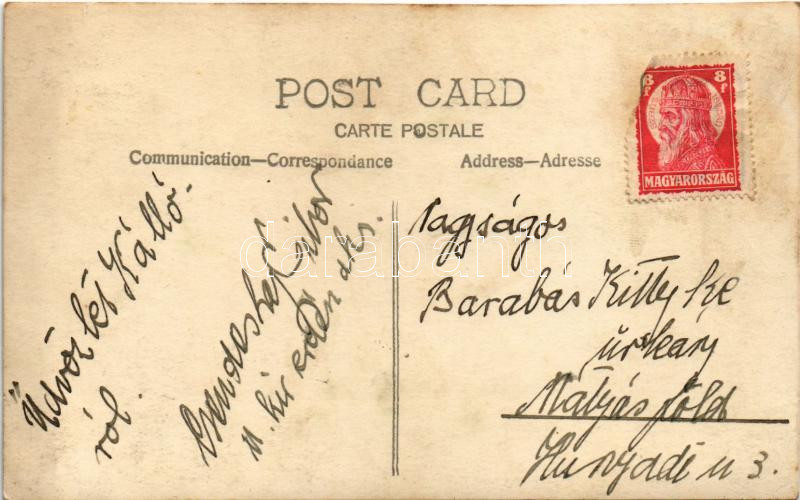 POST CARD
CARTE POSTALE
Communication—Correspondance
Address—Adresse
8 f
8 f
MAGYARORSZÁG
Üdvözlet Kálló-
ról.
Tibor
m. kir erdőm aks.
Nagyságos
Barabás Kitty
úrleány
Mátyásföld
Hunyadi u 3.
darabanth